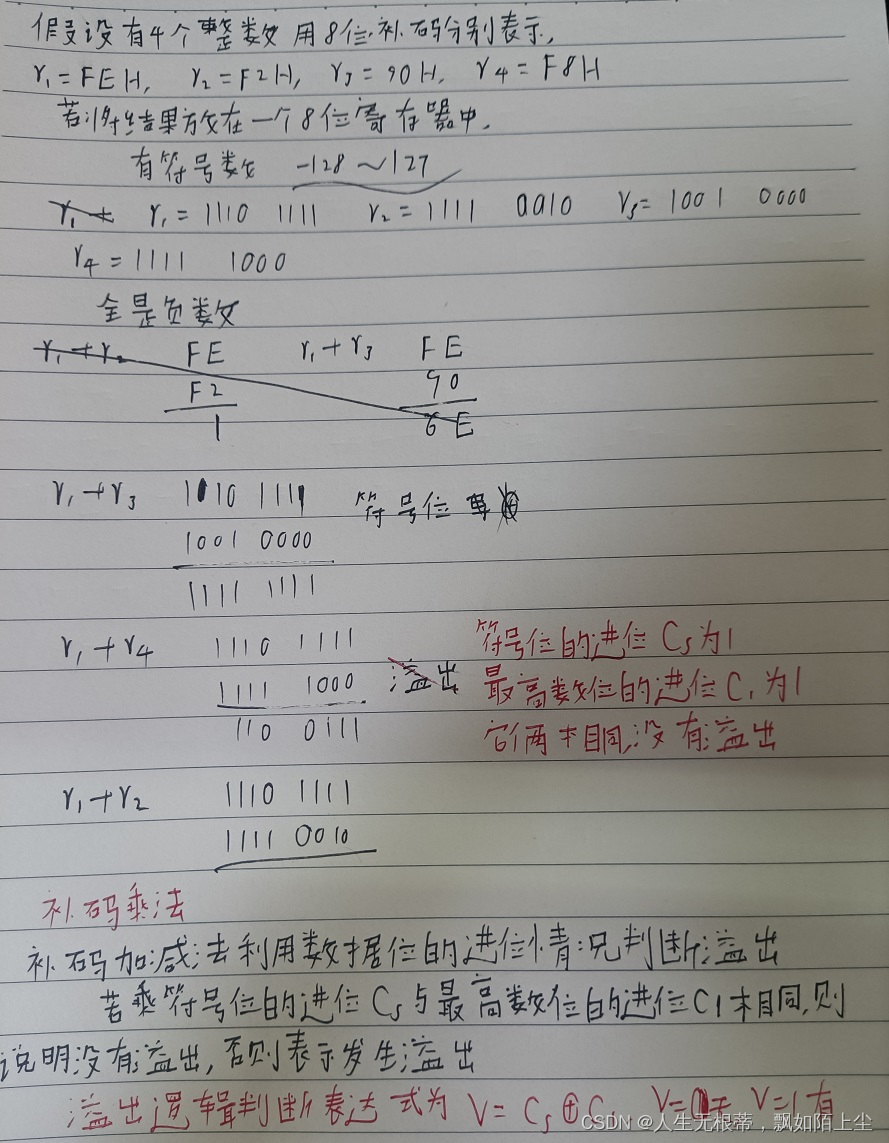 假设没有4个整数用8位补码分别表示,
r₁=FEH, r₂=F2H, r₃=90H, r₄=F8H
若将结果放在一个8位寄存器中,
有符号数 -128～127
r₁+ r₁=1110 1111 r₂=1111 0010 r₃=1001 0000
r₄=1111 1000
全是负数
r₁+r₂ FE r₁+r₃ FE
F2 90
1 6E
r₁+r₃ 1110 1111 符号位
1001 0000
1111 1111
r₁+r₄ 1110 1111 符号位的进位Cs为1
1111 1000 溢出 最高数位的进位C₁为1
110 0111 它俩相同,没有溢出
r₁+r₂ 1110 1111
1111 0010
补码乘法
补码加减法利用数据位的进位情况判断溢出
若乘符号位的进位Cs与最高数位的进位C1相同,则
说明没有溢出,否则表示发生溢出
溢出逻辑判断表达式为 V=Cs⊕C V=0 V=1有
CSDN @人生无根蒂，飘如陌上尘